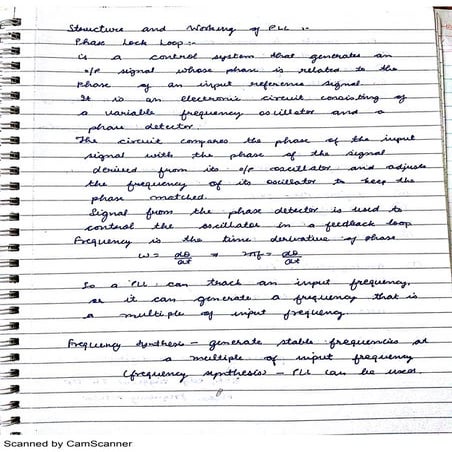 Structure and Working of PLL :-
Phase Lock Loop :-
is a control system that generates an
o/p signal whose phase is related to the
phase of an input reference signal
It is an electronic circuit consisting of
a variable frequency oscillator and a
phase detector
The circuit compares the phase of the input
signal with the phase of the signal
derived from its o/p oscillator and adjusts
the frequency of its oscillator to keep the
phase matched.
Signal from the phase detector is used to
control the oscillator in a feedback loop
Frequency is the time derivative of phase
ω = dθ/dt ⇒ 2πf = dθ/dt
So a PLL can track an input frequency,
or it can generate a frequency that is
a multiple of input frequency.
Frequency synthesis - generate stable frequencies at
a multiple of input frequency
(frequency synthesis) - PLL can be used.
Scanned by CamScanner